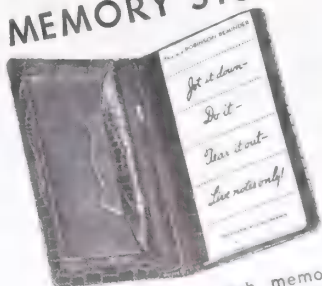 MEMORY
ROBINSON REMINDER
Jot it down-
Do it-
Tear it out-
Live notes only!